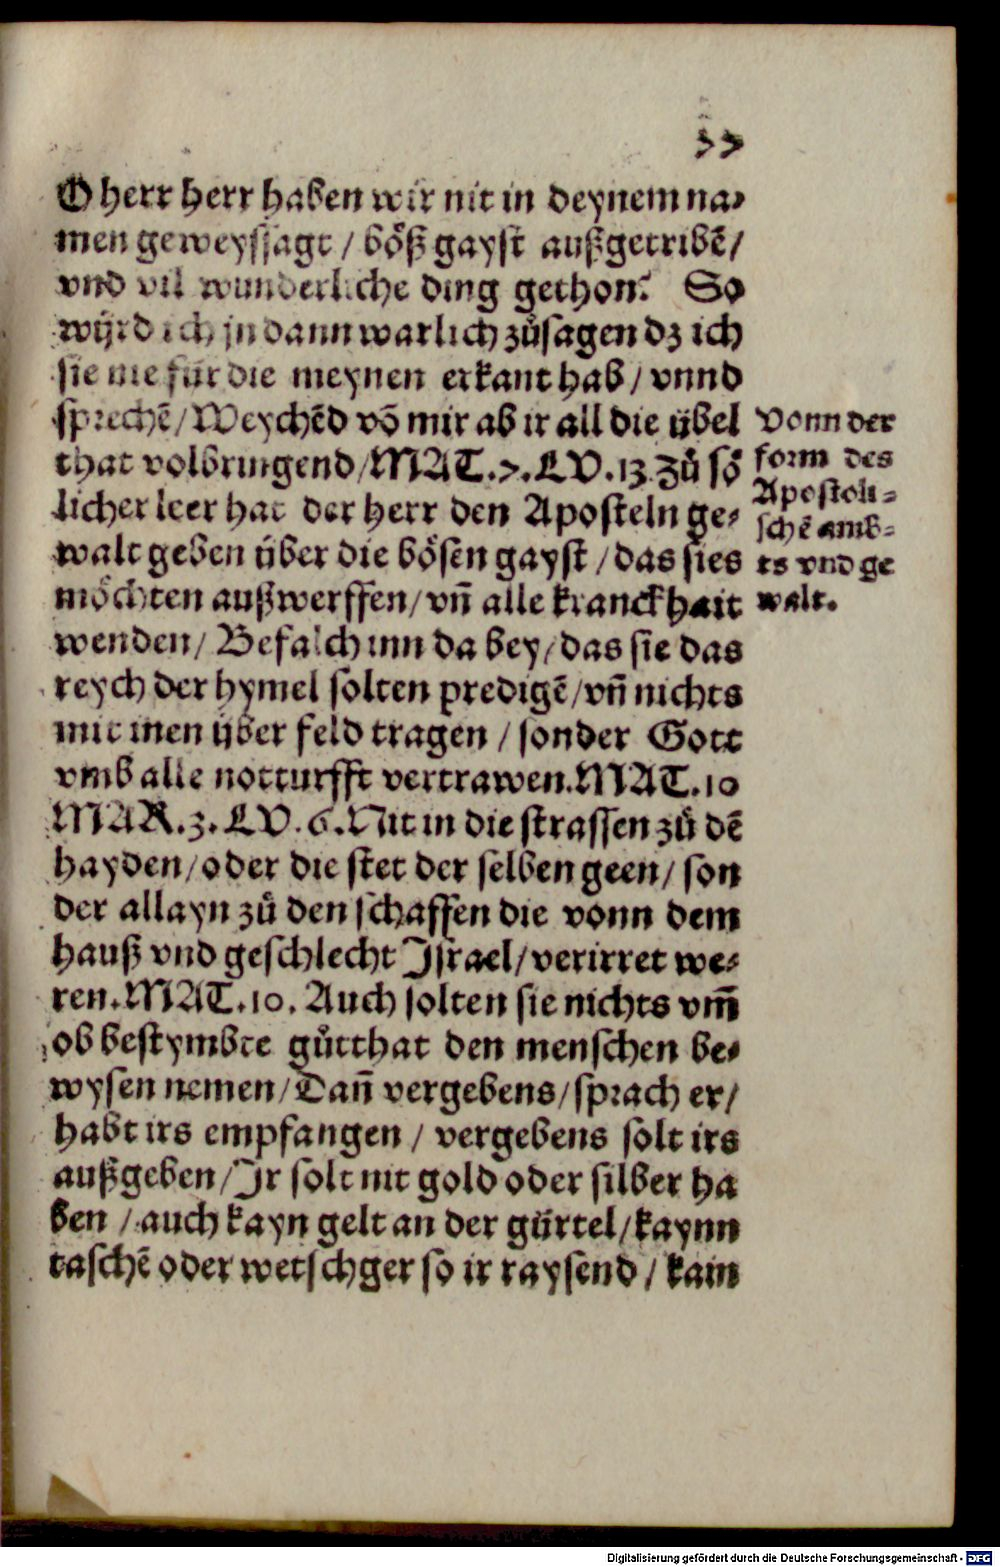 77
O herr herr haben wir nit in deynem na⸗
men geweyssagt / böß gayst außgetribē /
vnd vil wunderliche ding gethon? So
wyrd ich jn dann warlich zůsagen dz ich
sie nie für die meynen erkant hab / vnnd
sprechē / Weychēd vō mir ab ir all die übel
that volbringend / MAT.7.LV.13. Zů sō
licher leer hat der herr den Aposteln ge⸗
walt geben über die bösen gayst / das sies
möchten außwerffen / vn̄ alle kranckhait
wenden / Befalch inn da bey / das sie das
reych der hymel solten predigē / vn̄ nichts
mit inen über feld tragen / sonder Gott
vmb alle notturfft vertrawen. MAT.10
MAR.3.LV.6. Nit in die strassen zů dē
hayden / oder die stet der selben geen / son
der allayn zů den schaffen die vonn dem
hauß vnd geschlecht Israel / verirret we⸗
ren. MAT.10. Auch solten sie nichts vm̄
ob bestymbte gůtthat den menschen be⸗
wysen nemen / Dan̄ vergebens / sprach er /
habt irs empfangen / vergebens solt irs
außgeben / Ir solt nit gold oder silber ha
ben / auch kayn gelt an der gürtel / kaynn
taschē oder wetschger so ir raysend / kain
Vonn der
form des
Apostoli⸗
schē amb⸗
ts vnd ge
walt.
Digitalisierung gefördert durch die Deutsche Forschungsgemeinschaft - DFG